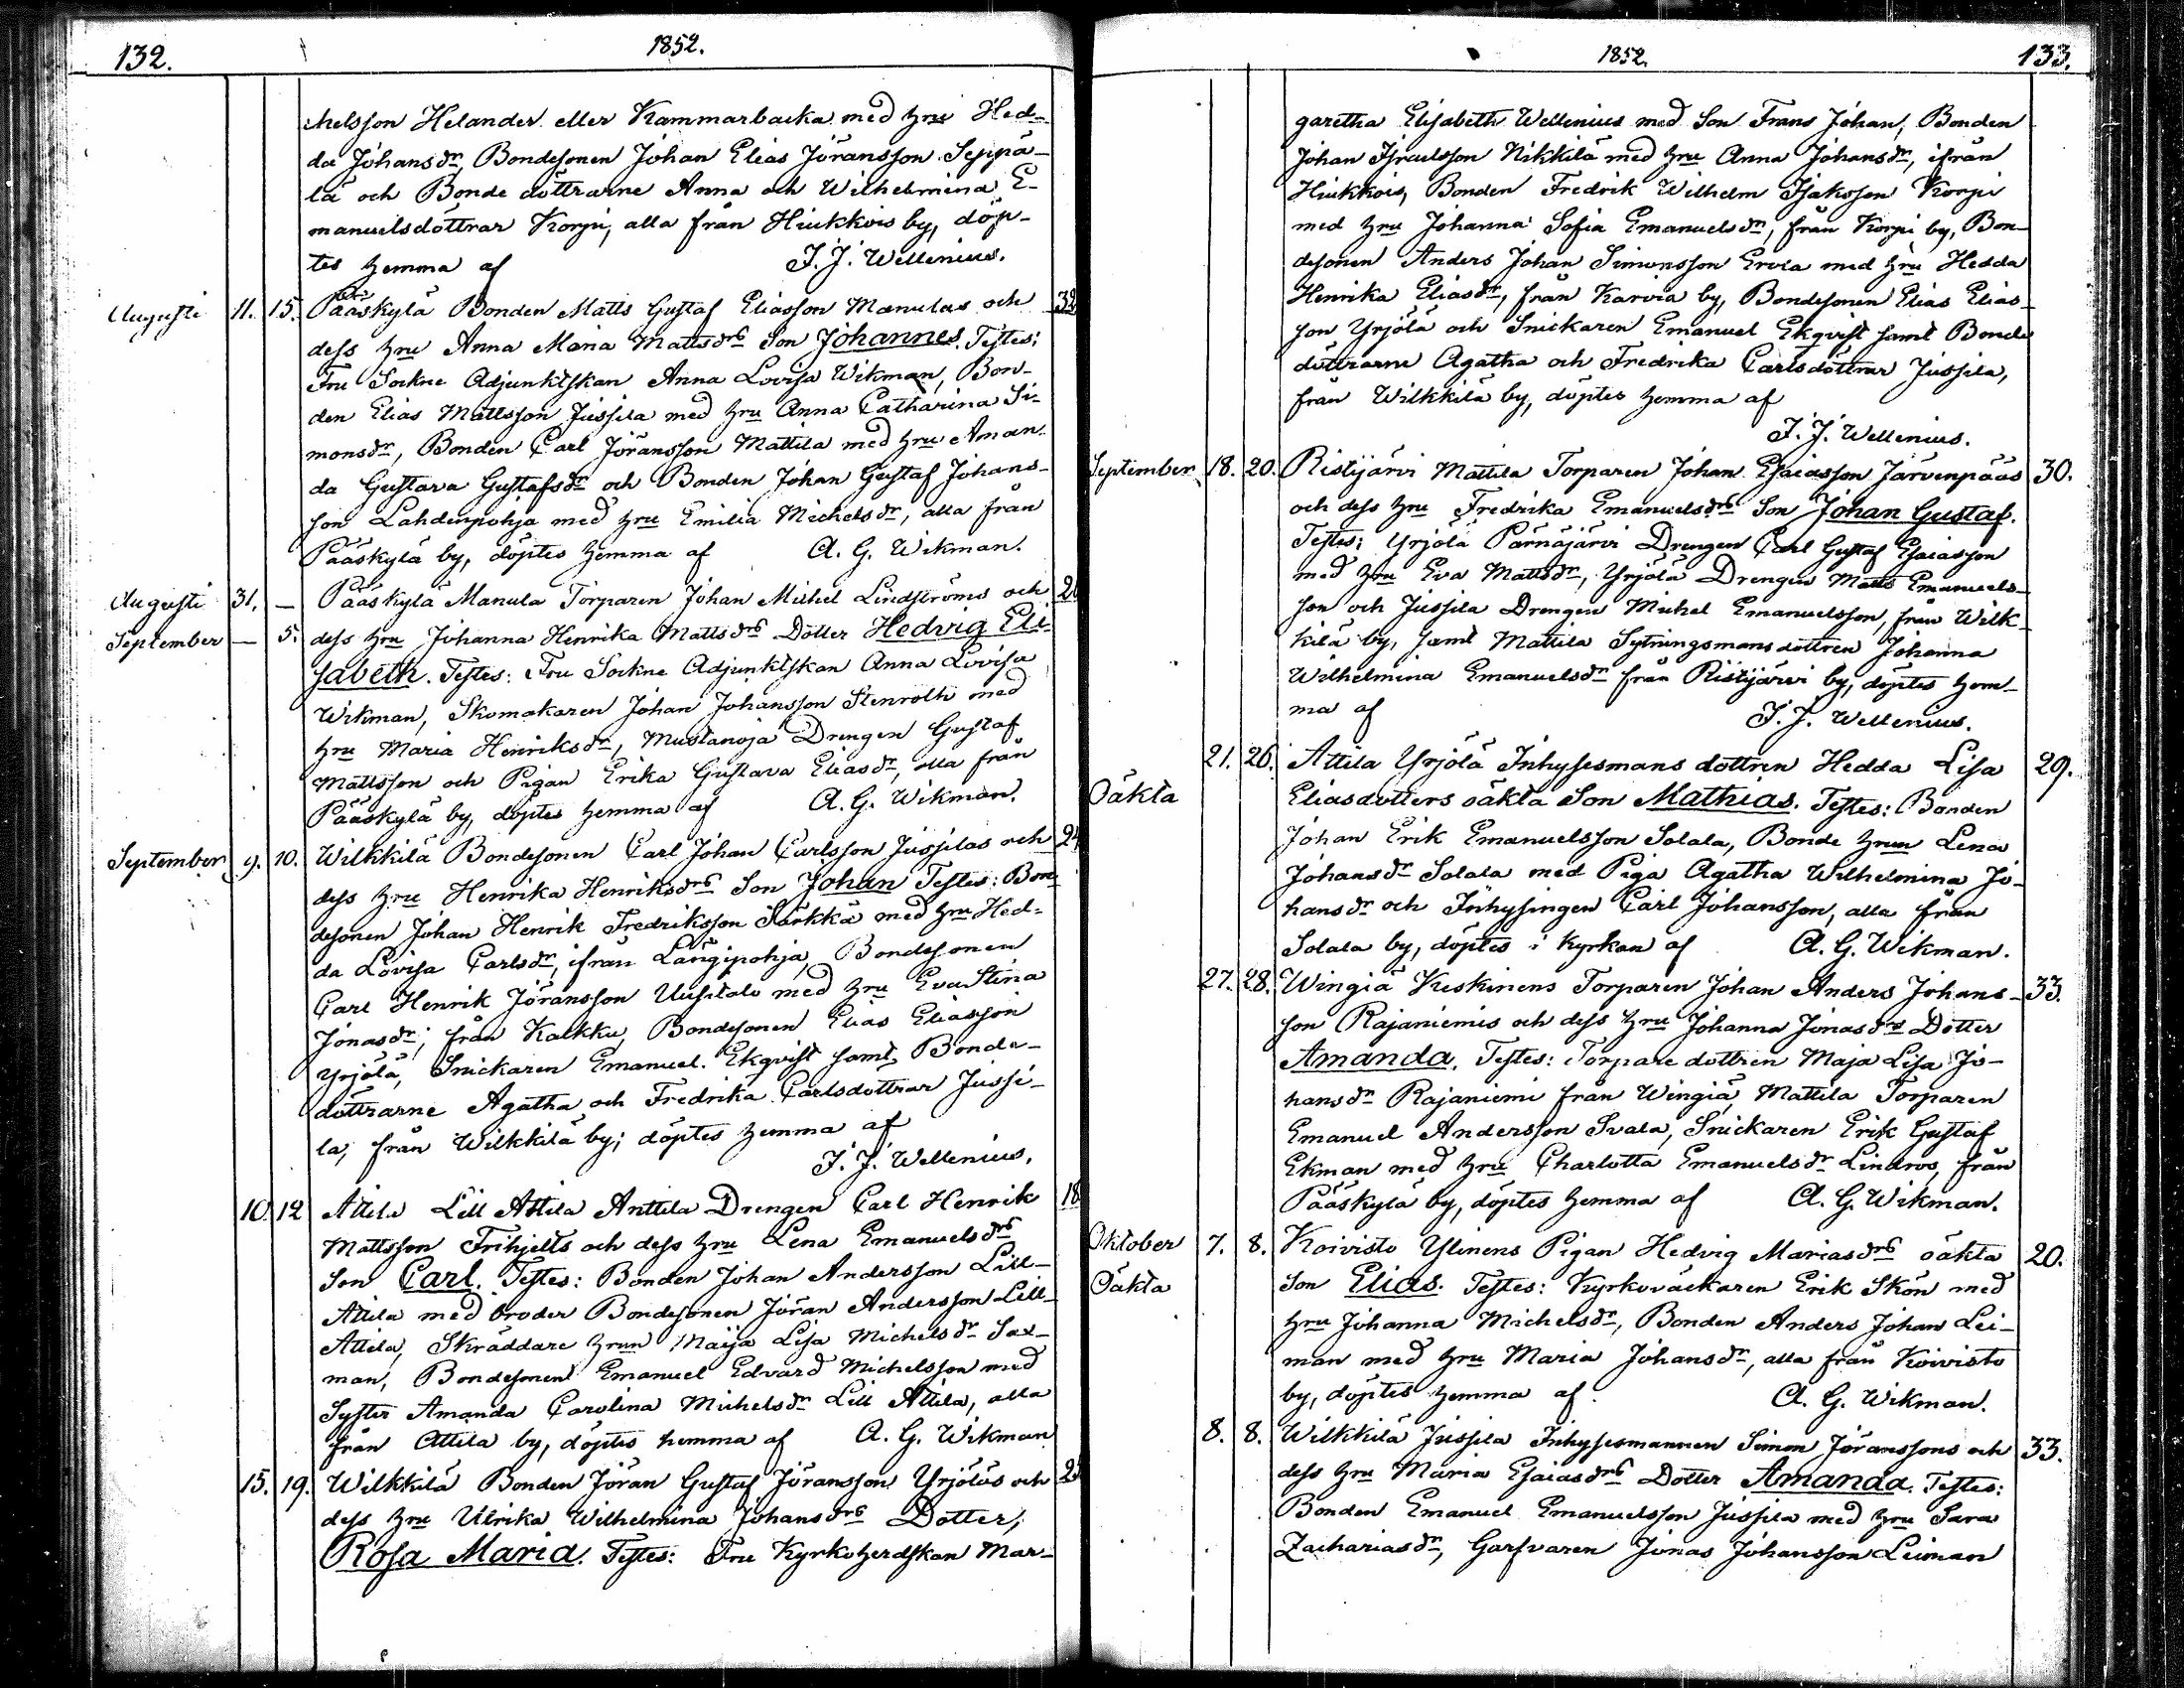 132.
1852.
chelsson Helander eller Kammarbacka med Hru Hed-
da Johansdr, Bondesonen Johan Elias Jöransson Seppä-
lä och Bonde döttrarne Anna och Wilhelmina E-
manuelsdöttrar Korpi, alla från Hiukkois by, döp-
tes hemma af J. J. Wellenius.
Augusti 11. 15. Pääskylä Bonden Matts Gustaf Eliasson Manulas och 32
dess Hru Anna Maria Mattsdrs Son Johannes. Testes:
Fru Sockne Adjunktskan Anna Lovisa Wikman, Bon-
den Elias Mattsson Jussila med Hru Anna Catharina Si-
monsdr, Bonden Carl Jöransson Mattila med Hru Aman-
da Gustava Gustafsdr och Bonden Johan Gustaf Johans-
son Lahdenpohja med Hru Emilia Michelsdr, alla från
Pääskylä by, döptes hemma af A. G. Wikman.
Augusti 31. — Pääskylä Manula Torparen Johan Michel Lindströms och
September — 5. dess Hru Johanna Henrika Mattsdrs Dotter Hedvig Eli-
sabeth. Testes: Fru Sockne Adjunktskan Anna Lovisa
Wikman, Skomakaren Johan Johansson Stenroth med
Hru Maria Henriksdr, Mustanoja Drengen Gustaf
Mattsson och Pigan Erika Gustava Eliasdr, alla från
Pääskylä by, döptes hemma af A. G. Wikman.
September 9. 10. Wilkkilä Bondesonen Carl Johan Carlsson Jussilas och
dess Hru Henrika Henriksdrs Son Johan Testes: Bon-
desonen Johan Henrik Fredriksson Särkkä med Hru Hed-
da Lovisa Carlsdr, ifrån Långipohja, Bondesonen
Carl Henrik Jöransson Uusitalo med Hru Eva Stina
Jonasdr, från Kalkku, Bondesonen Elias Eliasson
Yrjölä, Snickaren Emanuel Ekqvist samt Bonde-
döttrarne Agatha och Fredrika Carlsdöttrar Jussi-
la, från Wilkkilä by; döptes hemma af
J. J. Wellenius.
10. 12 Attila Lill Attila Anttila Drengen Carl Henrik 18
Mattsson Frihjelts och dess Hru Lena Emanuelsdrs
Son Carl. Testes: Bonden Johan Andersson Lill-
Attila med broder Bondesonen Jöran Andersson Lill-
Attila, Skräddare Hrun Maija Lisa Michelsdr Sax-
man, Bondesonen Emanuel Edvard Michelsson med
Syster Amanda Carolina Michelsdr Lill Attila, alla
från Attila by, döptes hemma af A. G. Wikman
15. 19. Wilkkilä Bonden Jöran Gustaf Jöransson Yrjöläs och
dess Hru Ulrika Wilhelmina Johansdrs Dotter,
Rosa Maria. Testes: Fru Kyrkoherdskan Mar-
1852.
133.
garetha Elisabeth Wellenius med Son Frans Johan, Bonden
Johan Israelsson Nikkilä med Hru Anna Johansdr, ifrån
Hiukkois, Bonden Fredrik Wilhelm Isaksson Korpi
med Hru Johanna Sofia Emanuelsdr, från Korpi by, Bon-
desonen Anders Johan Simonsson Erola med Hru Hedda
Henrika Eliasdr, från Karvia by, Bondesonen Elias Elias-
son Yrjölä och Snickaren Emanuel Ekqvist samt Bonde
döttrarne Agatha och Fredrika Carlsdöttrar Jussila,
från Wilkkilä by, döptes hemma af
J. J. Wellenius.
September 18. 20. Ristijärvi Mattila Torparen Johan Esaiasson Järvenpääs 30.
och dess Hru Fredrika Emanuelsdrs Son Johan Gustaf.
Testes: Yrjölä Pärnäjärvi Drengen Carl Gustaf Esaiasson
med Hru Eva Mattsdr, Yrjölä Drengen Matts Emanuels-
son och Jussila Drengen Michel Emanuelsson, från Wilk-
kilä by, samt Mattila Sytningsmansdottren Johanna
Wilhelmina Emanuelsdr från Ristijärvi by, döptes hem-
ma af J. J. Wellenius.
21. 26. Attila Yrjölä Inhysesmans dottren Hedda Lisa 29.
Oäkta Eliasdotters oäkta Son Mathias. Testes: Bonden
Johan Erik Emanuelsson Solala, Bonde Hrun Lena
Johansdr Solala med Piga Agatha Wilhelmina Jo-
hansdr och Inhysingen Carl Johansson, alla från
Solala by, döptes i kyrkan af A. G. Wikman.
27. 28. Wingiä Keskinens Torparen Johan Anders Johans- 33.
son Rajaniemis och dess Hru Johanna Jonasdrs Dotter
Amanda. Testes: Torpare dottren Maja Lisa Jo-
hansdr Rajaniemi från Wingiä, Mattila Torparen
Emanuel Andersson Svala, Snickaren Erik Gustaf
Ekman med Hru Charlotta Emanuelsdr Lindros, från
Pääskylä by, döptes hemma af A. G. Wikman.
Oktober 7. 8. Koivisto Ylinens Pigan Hedvig Mariasdrs oäkta 20.
Oäkta Son Elias. Testes: Kyrkoväckaren Erik Skön med
Hru Johanna Michelsdr, Bonden Anders Johan Lei-
man med Hru Maria Johansdr, alla från Koivisto
by, döptes hemma af A. G. Wikman.
8. 8. Wilkkilä Jussila Inhysesmannen Simon Jöranssons och 33.
dess Hru Maria Esaiasdrs Dotter Amanda. Testes:
Bonden Emanuel Emanuelsson Jussila med Hru Sara
Zachariasdr, Garfvaren Jonas Johansson Leiman